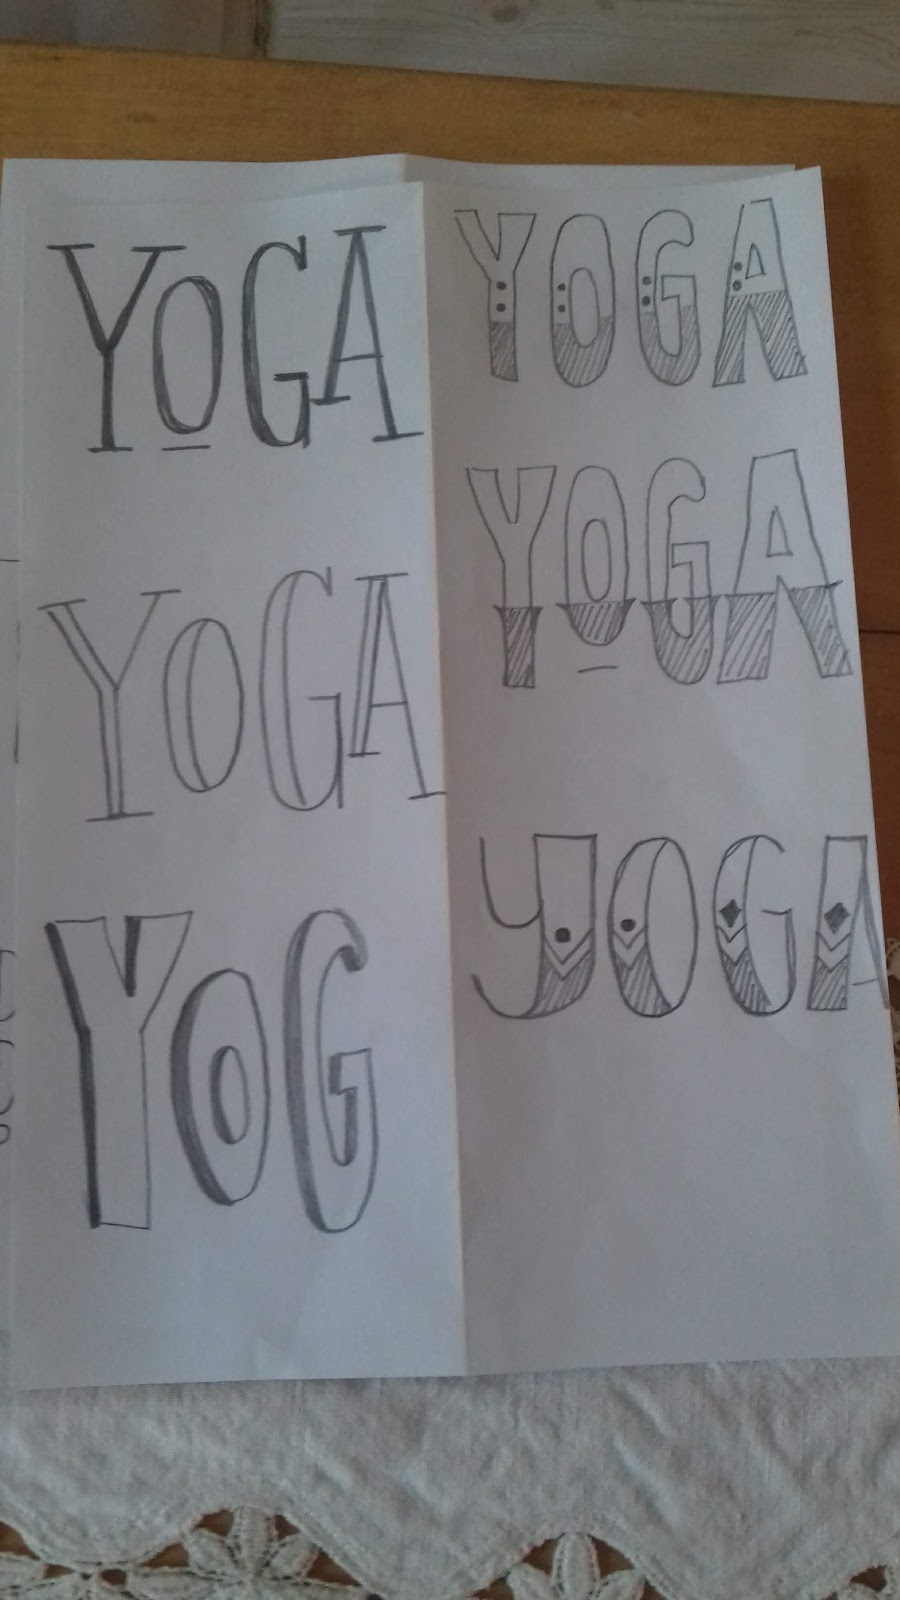 YOGA
YOGA
YOG
YOGA
YOGA
YOGA